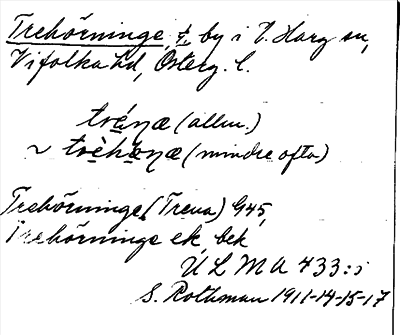 Trehörninge, f, by i V. Harg sn,
Vifolka hd, Österg. l.
tréŋæ (allm.)
~ trèhø̀ŋæ (mindre ofta)
Trehörninge (Trena) G45,
Trehörninge ek, bek
ULMA 433:i
S. Rothman 1911-14-15-17